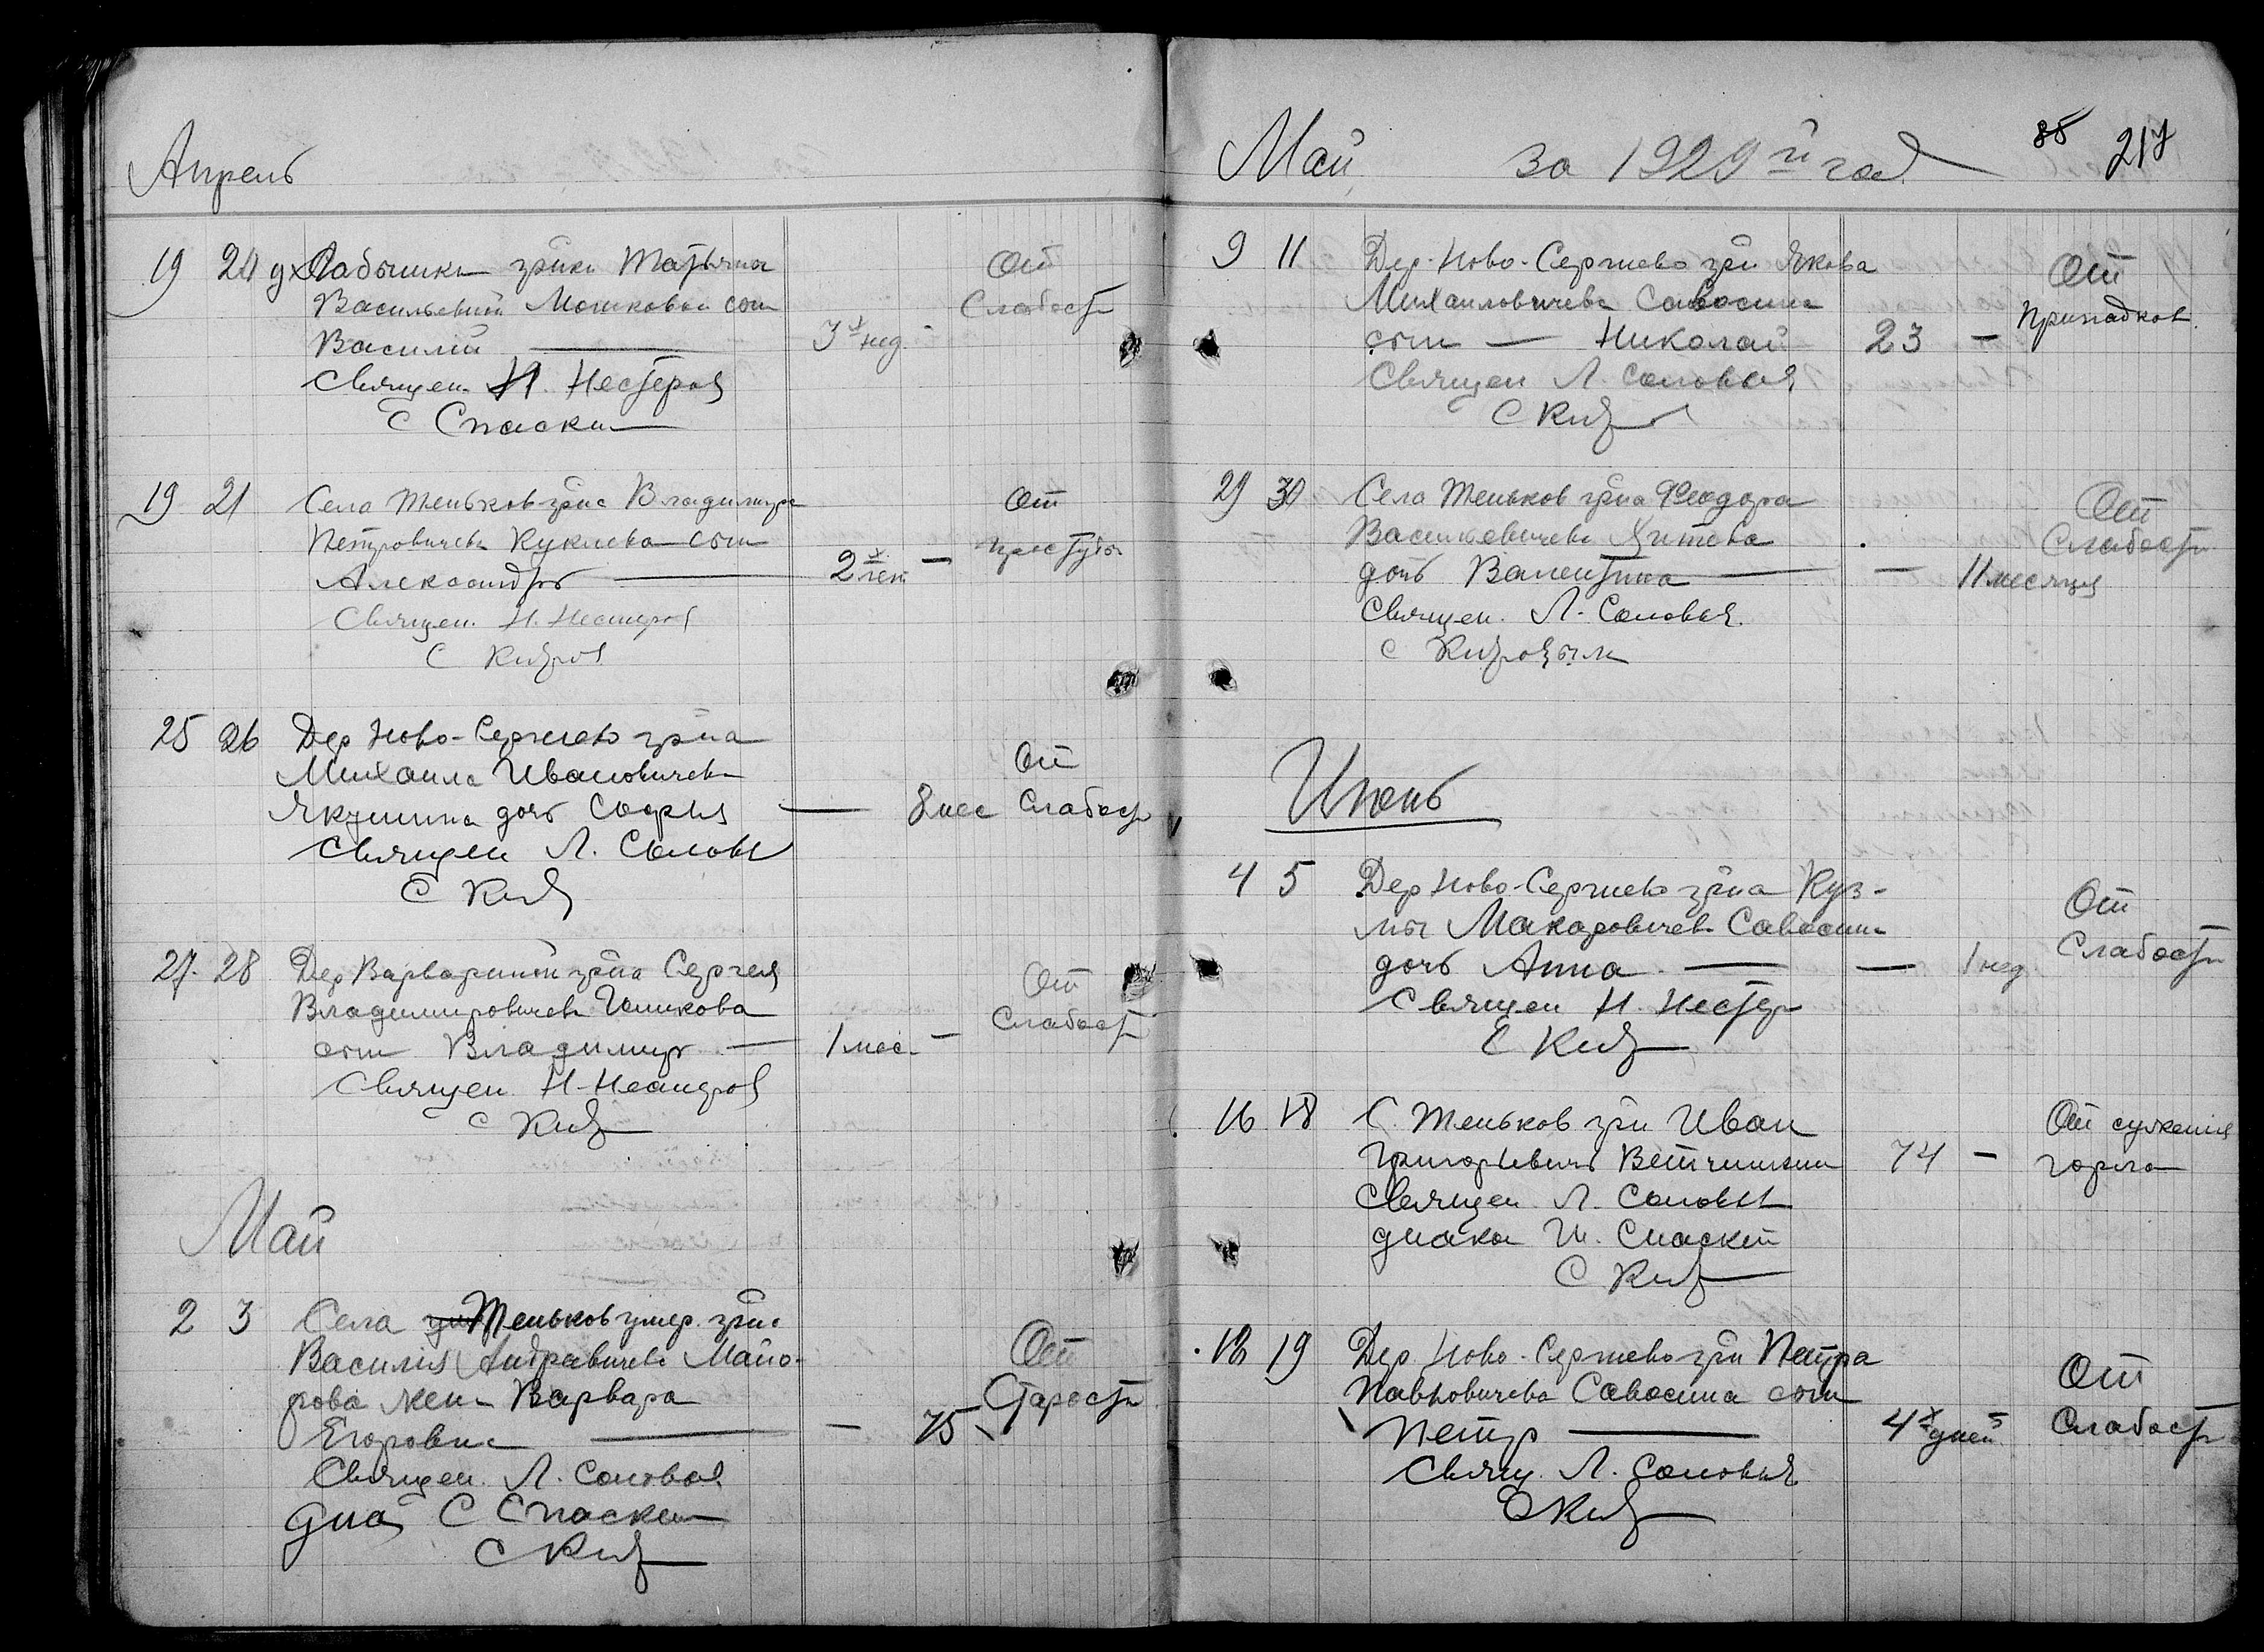 Апрель
19 24 Рабынки гр-ки Татьяны
Васильевной Мошковой сын
Василий — 3х нед. —
От
Слабости
Священ. Н. Нестеров
С Спаски
19 21 Села Теньков гр-на Владимира
Петровичева Куклева сын
Александръ — 2х лет —
От
простуды
Священ. Н. Нестеров
С Кидров
25 26 Дер Ново-Сергиево гр-на
Михаила Ивановичева
Якушина дочь София — 8 мес
От
Слабости
Священ Л. Соловьев
С Кидр
27. 28 Дер Варвариной гр-на Сергея
Владимировичева Гошкова
сын Владимир — 1 мес. —
От
Слабости
Священ Н. Нестеров
С Кидр
Май
2 3 Села Теньков умер. гр-на
Василия Андреевичева Майо-
рова жена Варвара
Егоровна — — 75
От
Старости
Священ. Л. Соловьев
диак С Спаским
С Кидр
Май за 1929й год
88 217
9 11 Дер. Ново-Сергиево гр-на Якова
Михаиловичева Савосина
сын — Николай 23 —
От
припадков.
Священ Л. Соловьев
С Кидр
29 30 Села Теньков гр-на Феодора
Васильевичева
дочь Валентина — — 11 месяцев
От
Слабости
Священ. Л. Соловьев.
С Кидровым
Июнь
4 5 Дер Ново-Сергиево гр-на Куз-
мы Макаровичева Савосина
дочь Анна — — 1 нед.
От
Слабости
Священ Н. Нестер
С Кидр
16 18 С. Теньков гр-н Иван
Григорьевич Ветчинкин 74 —
От сужения
горла
Священ. Л. Соловьев
диакон И. Спаский
С Кидр
18 19 Дер. Ново-Сергиево гр-на Петра
Павловичева Савосина сын
Петр — 4х дней
От
Слабости
Свящ. Л. Соловьев
С Кидр